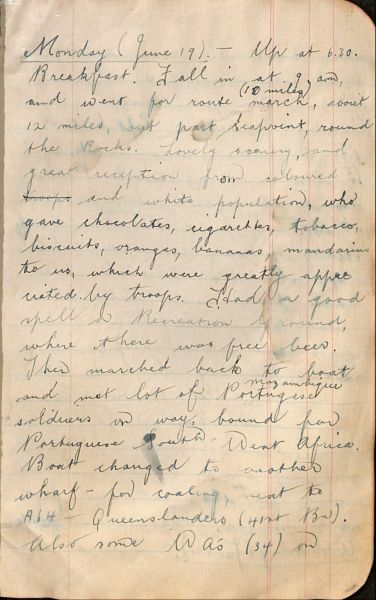 Monday (June 19). - Up at 6.30.
Breakfast. Fall in at 9 am,
and went for route (10 miles) march, about
12 miles, out past Seapoint, round
the Rocks. Lovely scenery, and
great reception from coloured
troops and white population, who
gave chocolates, cigarettes, tobacco,
biscuits, oranges, bananas, mandarins
to us, which were greatly appre
ciated by troops. Had a good
spell in Recreation Ground,
where there was free beer.
Then marched back to boat
and met lot of Portugese mozambique
soldiers on way, bound for
Portuguese South West Africa.
Boat changed to another
wharf - for coaling, next to
A64 - Queenslanders (41st Bn).
Also some WAs (34) on